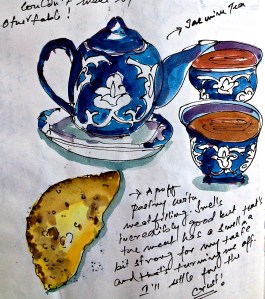 couldn't
→ Jasmine Tea
→ A puff
pastry with
meat filling. Smells
incredibly good but that's
the meat has a smell a
bit strong for my taste
and that's turning me off.
I'll settle for the
Crust!